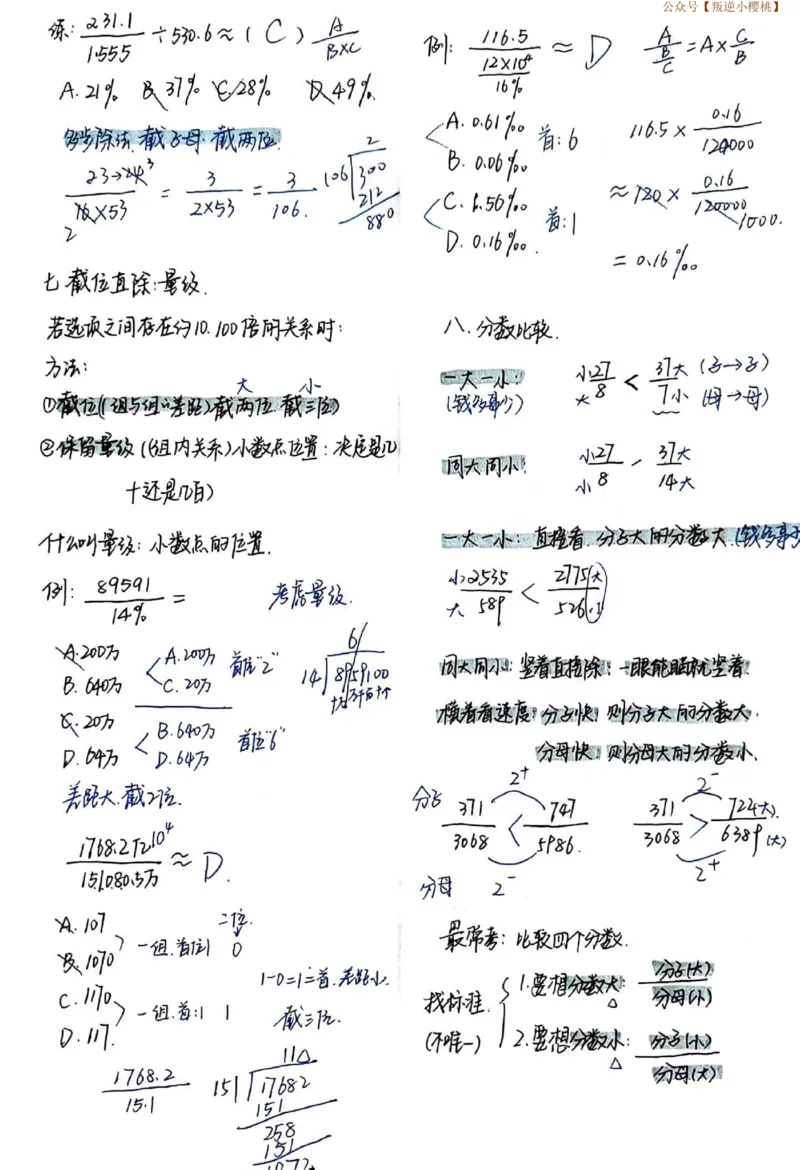 公众号【叛逆小樱桃】
练: 231.1/1.555 ÷530.6≈( C ) A/B×C
A.21% B.37% C.28% D.49%
多步除法.截子母.截两位.
23→24 3/16×53 2 = 3/2×53 = 3/106.
2
106 300
212
880
七.截位直除:量级.
若选项之间存在约10.100倍的关系时:
方法:
大 小
①截位(组与组"差距)截两位.截三位)
②保留量级(组内关系)小数点位置:决定是几
十还是几百)
什么叫量级:小数点的位置.
例: 89591/14% = 考虑量级.
A.200万 A.200万 首位"2"
B.640万 C.20万
C.20万 B.640万 首位"6"
D.64万 D.64万
6
14 8959100
差距大.截2位.
1768.2亿10⁴/151080.5万 ≈ D.
A.107 二位.
B.1070 一组.首位1 0
C.1170 1-0=1=首.差距小.
D.117. 一组.首:1 1 截三位.
1768.2/15.1
11
151 17682
151
258
151
例: 116.5/(12×10⁴/16%) ≈ D A/(B/C)=A×C/B
A.0.61‱ 首:6
B.0.06‱
C.1.56‱ 首:1
D.0.16‱.
116.5× 0.16/120000
≈120× 0.16/120000 1000.
=0.16‱
八.分数比较.
一大一小: 小27/大8 < 37大/7小 (子→子)
(钱多事少) (母→母)
同大同小: 小27/小8 - 37大/14大
一大一小:直接看.分子大的分数大.(钱多事少
小2535/大589 < 2775大/526小
同大同小:竖着直接除:一眼能瞄就竖着.
横着看速度:分子快:则分子大的分数大.
分母快:则分母大的分数小.
分子 2⁺ 2⁻
371/3068 < 747/5986. 371/3068 > 724(大)/6389(大)
分母 2⁻ 2⁺
最常考:比较四个分数.
找标准. 1.要想分数大: 分子(大)/分母(小)
(不唯一) 2.要想分数小: 分子(小)/分母(大)